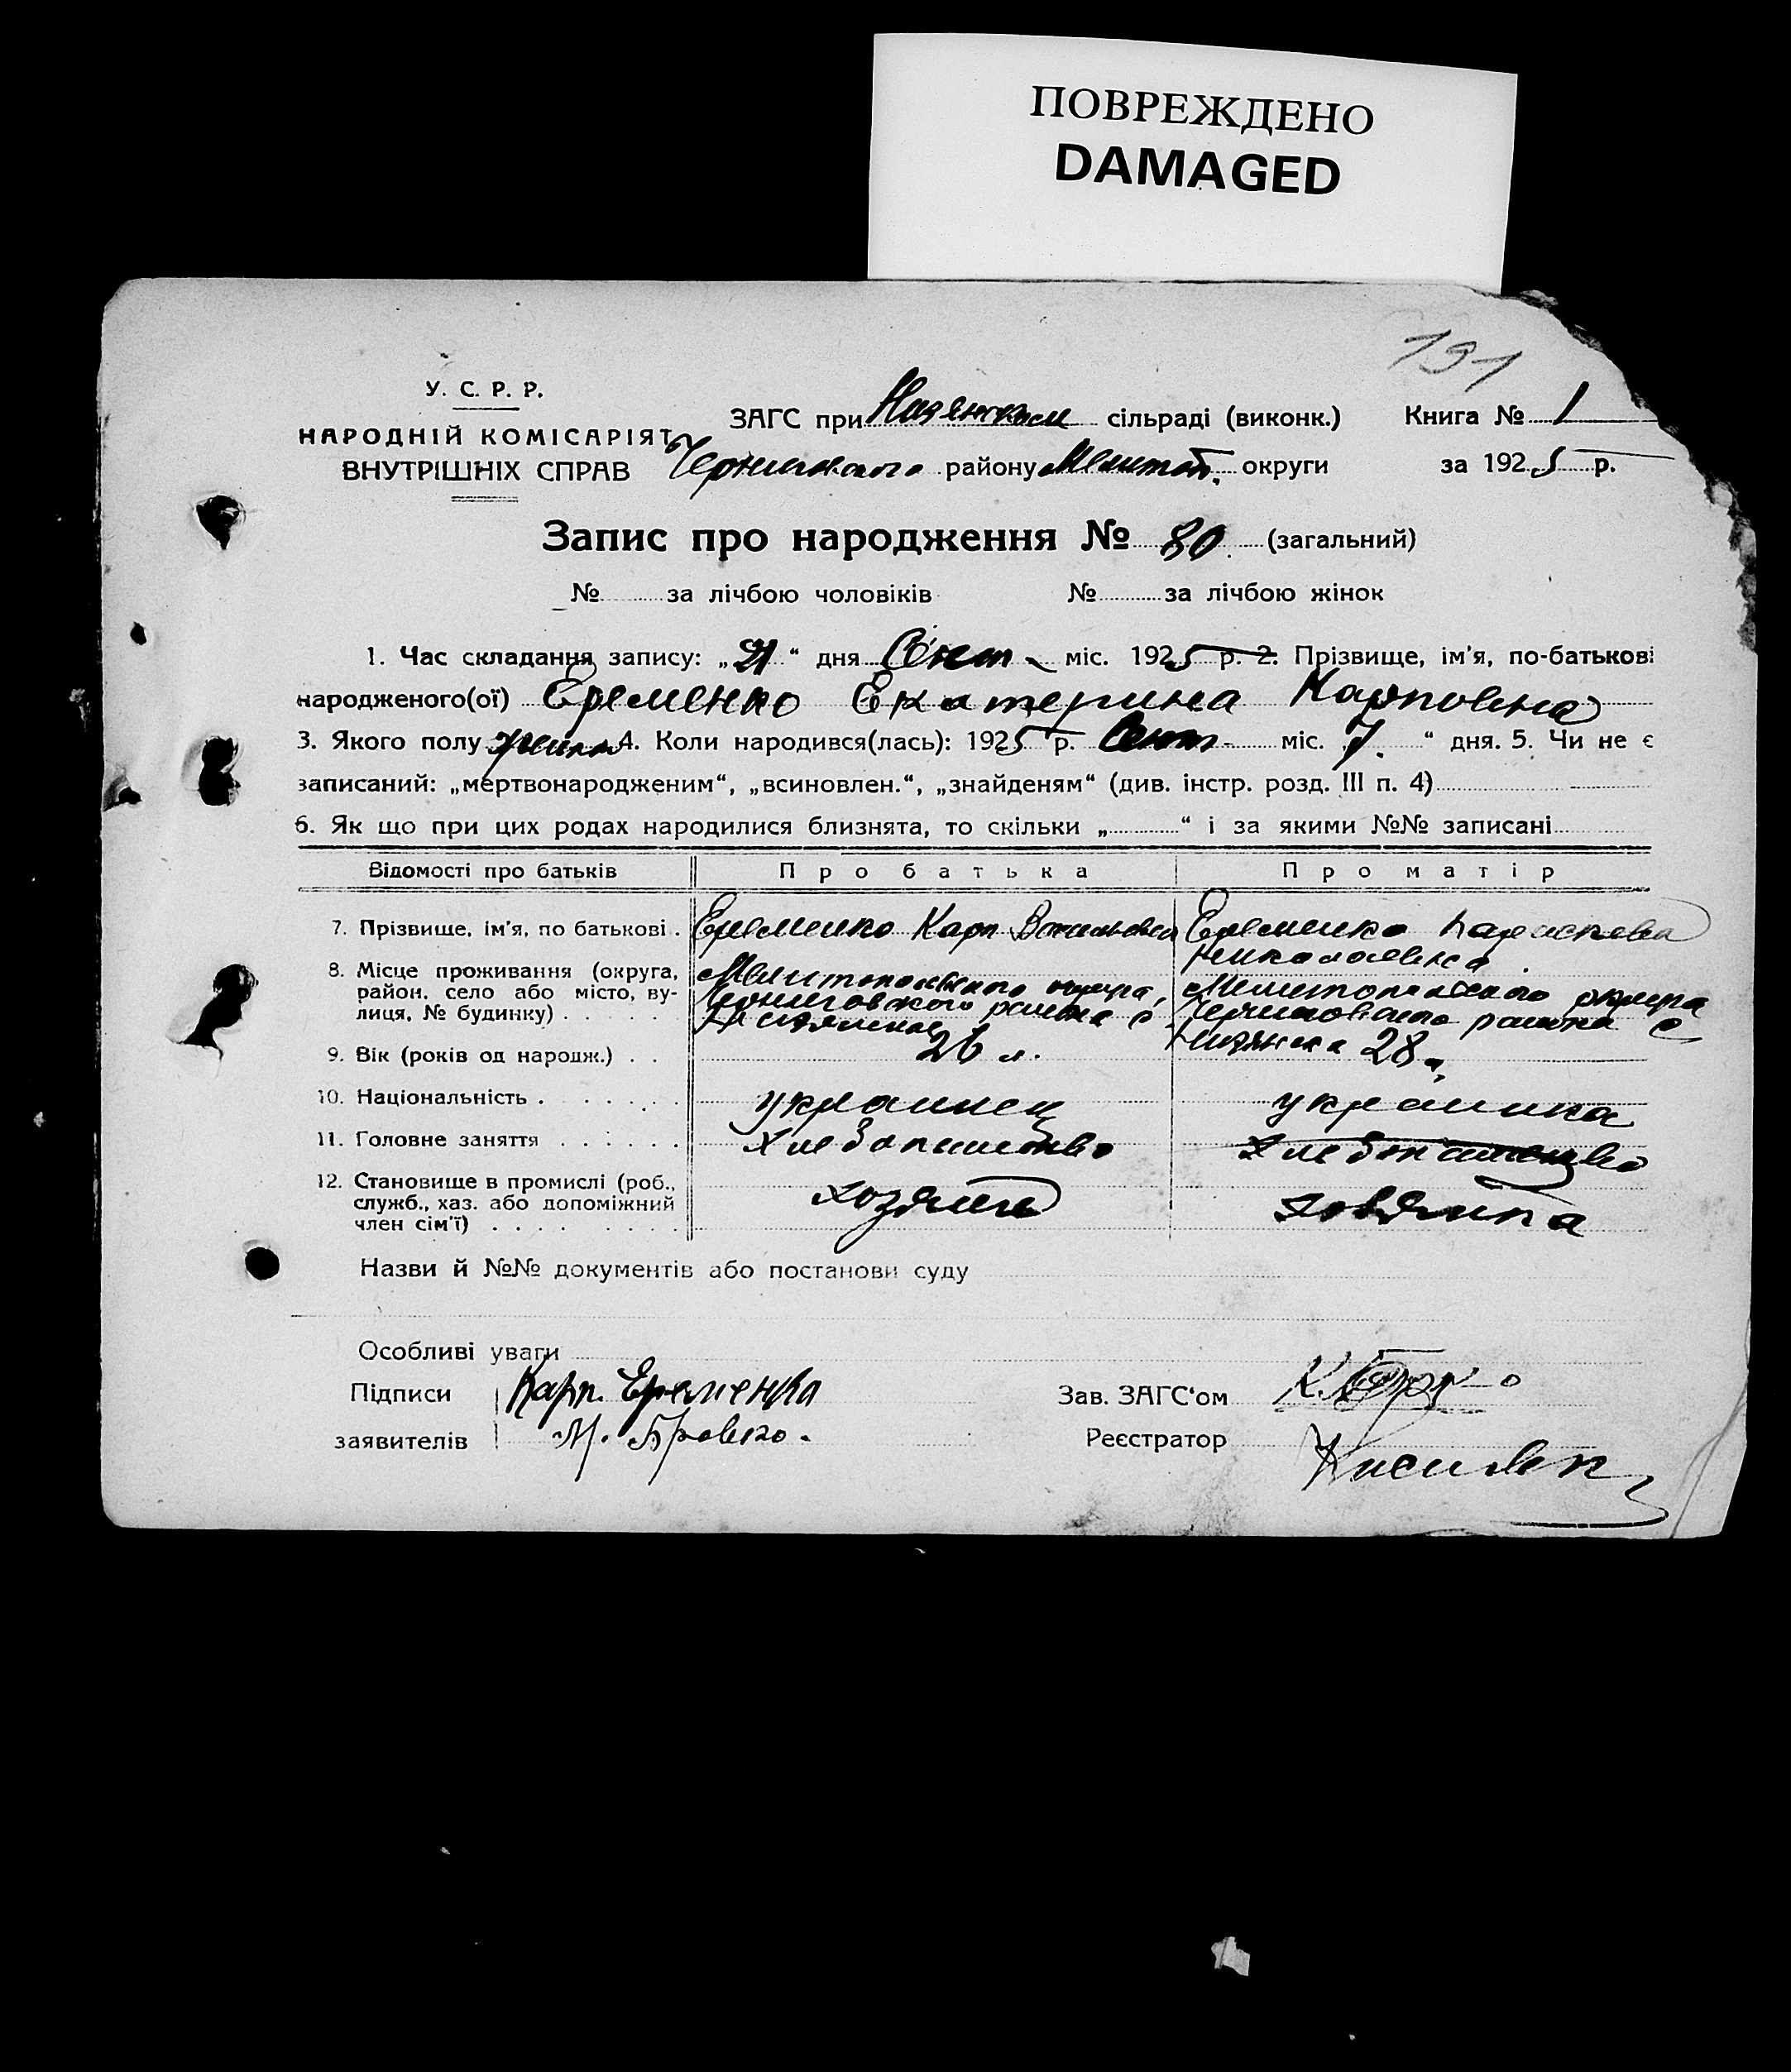 ПОВРЕЖДЕНО
DAMAGED
191
У. С. Р. Р.
НАРОДНІЙ КОМІСАРІЯТ
ВНУТРІШНІХ СПРАВ
ЗАГС при сільраді (виконк.) Книга № 1
Черниговского району Мелитоп. округи за 1925 р.
Запис про народження № 80. (загальний)
№ за лічбою чоловіків № за лічбою жінок
1. Час складання запису: „21“ дня міс. 1925 р. 2. Прізвище, ім'я, по-батькові
народженого(ої) Еременко Екатерина Карповна
3. Якого полу 4. Коли народився(лась): 1925 р. Сент. міс. 7. “ дня. 5. Чи не є
записаний: „мертвонародженим“, „всиновлен.“, „знайденям“ (див. інстр. розд. III п. 4)
6. Як що при цих родах народилися близнята, то скільки „ “ і за якими №№ записані
Відомості про батьків Про батька Про матір
7. Прізвище, ім'я, по батькові . Еременко Карп Васильевич Еременко
Николаевна
8. Місце проживання (округа, район, село або місто, вулиця, № будинку) . Мелитопольского округа, Мелитопольского округа
Черниговского района с. Черниговского района с.
9. Вік (років од народж.) . . 26 л. 28 л.
10. Національність . украинец украинка
11. Головне заняття . хлебопашство хлебопашество
12. Становище в промислі (роб., служб., хаз. або допоміжний член сім'ї) хозяин хозяйка
Назви й №№ документів або постанови суду
Особливі уваги
Підписи Карп. Еременко Зав. ЗАГС'ом
заявителів М. Бровко. Реєстратор